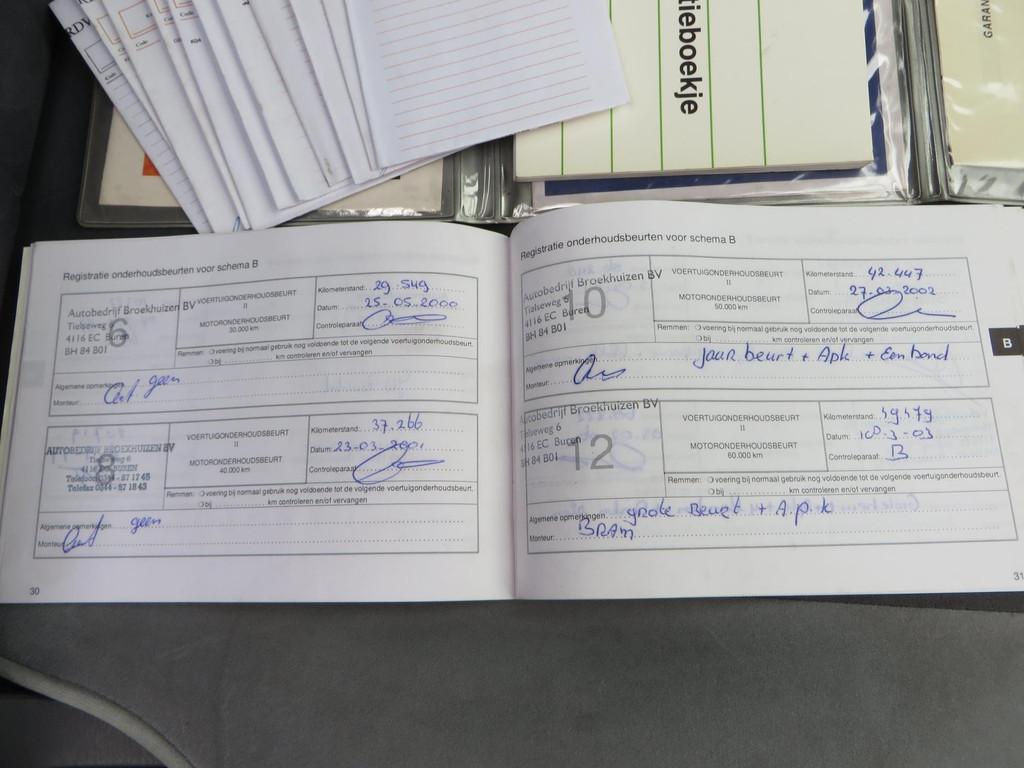 RDW
Code
tieboekje
GARAN
Registratie onderhoudsbeurten voor schema B
6
Autobedrijf Broekhuizen BV
Tielseweg 6
4116 EC Buren
BH 84 B01
VOERTUIGONDERHOUDSBEURT
II
MOTORONDERHOUDSBEURT
30.000 km
Kilometerstand: 29.549
Datum: 25-05-2000
Controleparaaf:
Remmen: voering bij normaal gebruik nog voldoende tot de volgende voertuigonderhoudsbeurt.
bij km controleren en/of vervangen
Algemene opmerkingen geen
Monteur:
8
AUTOBEDRIJF BROEKHUIZEN BV
Tielseweg 6
4116 EC BUREN
Telefoon 0344 - 57 17 45
Telefax 0344 - 57 18 43
VOERTUIGONDERHOUDSBEURT
II
MOTORONDERHOUDSBEURT
40.000 km
Kilometerstand: 37.266
Datum: 23-03-2001
Controleparaaf:
Remmen: voering bij normaal gebruik nog voldoende tot de volgende voertuigonderhoudsbeurt.
bij km controleren en/of vervangen
Algemene opmerkingen geen
Monteur:
30
Registratie onderhoudsbeurten voor schema B
10
Autobedrijf Broekhuizen BV
Tielseweg 6
4116 EC Buren
BH 84 B01
VOERTUIGONDERHOUDSBEURT
II
MOTORONDERHOUDSBEURT
50.000 km
Kilometerstand: 42.447
Datum: 27-03-2002
Controleparaaf:
Remmen: voering bij normaal gebruik nog voldoende tot de volgende voertuigonderhoudsbeurt.
bij km controleren en/of vervangen
Algemene opmerkingen: jaar beurt + Apk +
Monteur:
B
12
Autobedrijf Broekhuizen BV
Tielseweg 6
4116 EC Buren
BH 84 B01
VOERTUIGONDERHOUDSBEURT
II
MOTORONDERHOUDSBEURT
60.000 km
Kilometerstand: 49479
Datum: 10-3-03
Controleparaaf: B
Remmen: voering bij normaal gebruik nog voldoende tot de volgende voertuigonderhoudsbeurt.
bij km controleren en/of vervangen
Algemene opmerkingen: grote Beurt + A.p.k
Monteur: BRAM
31